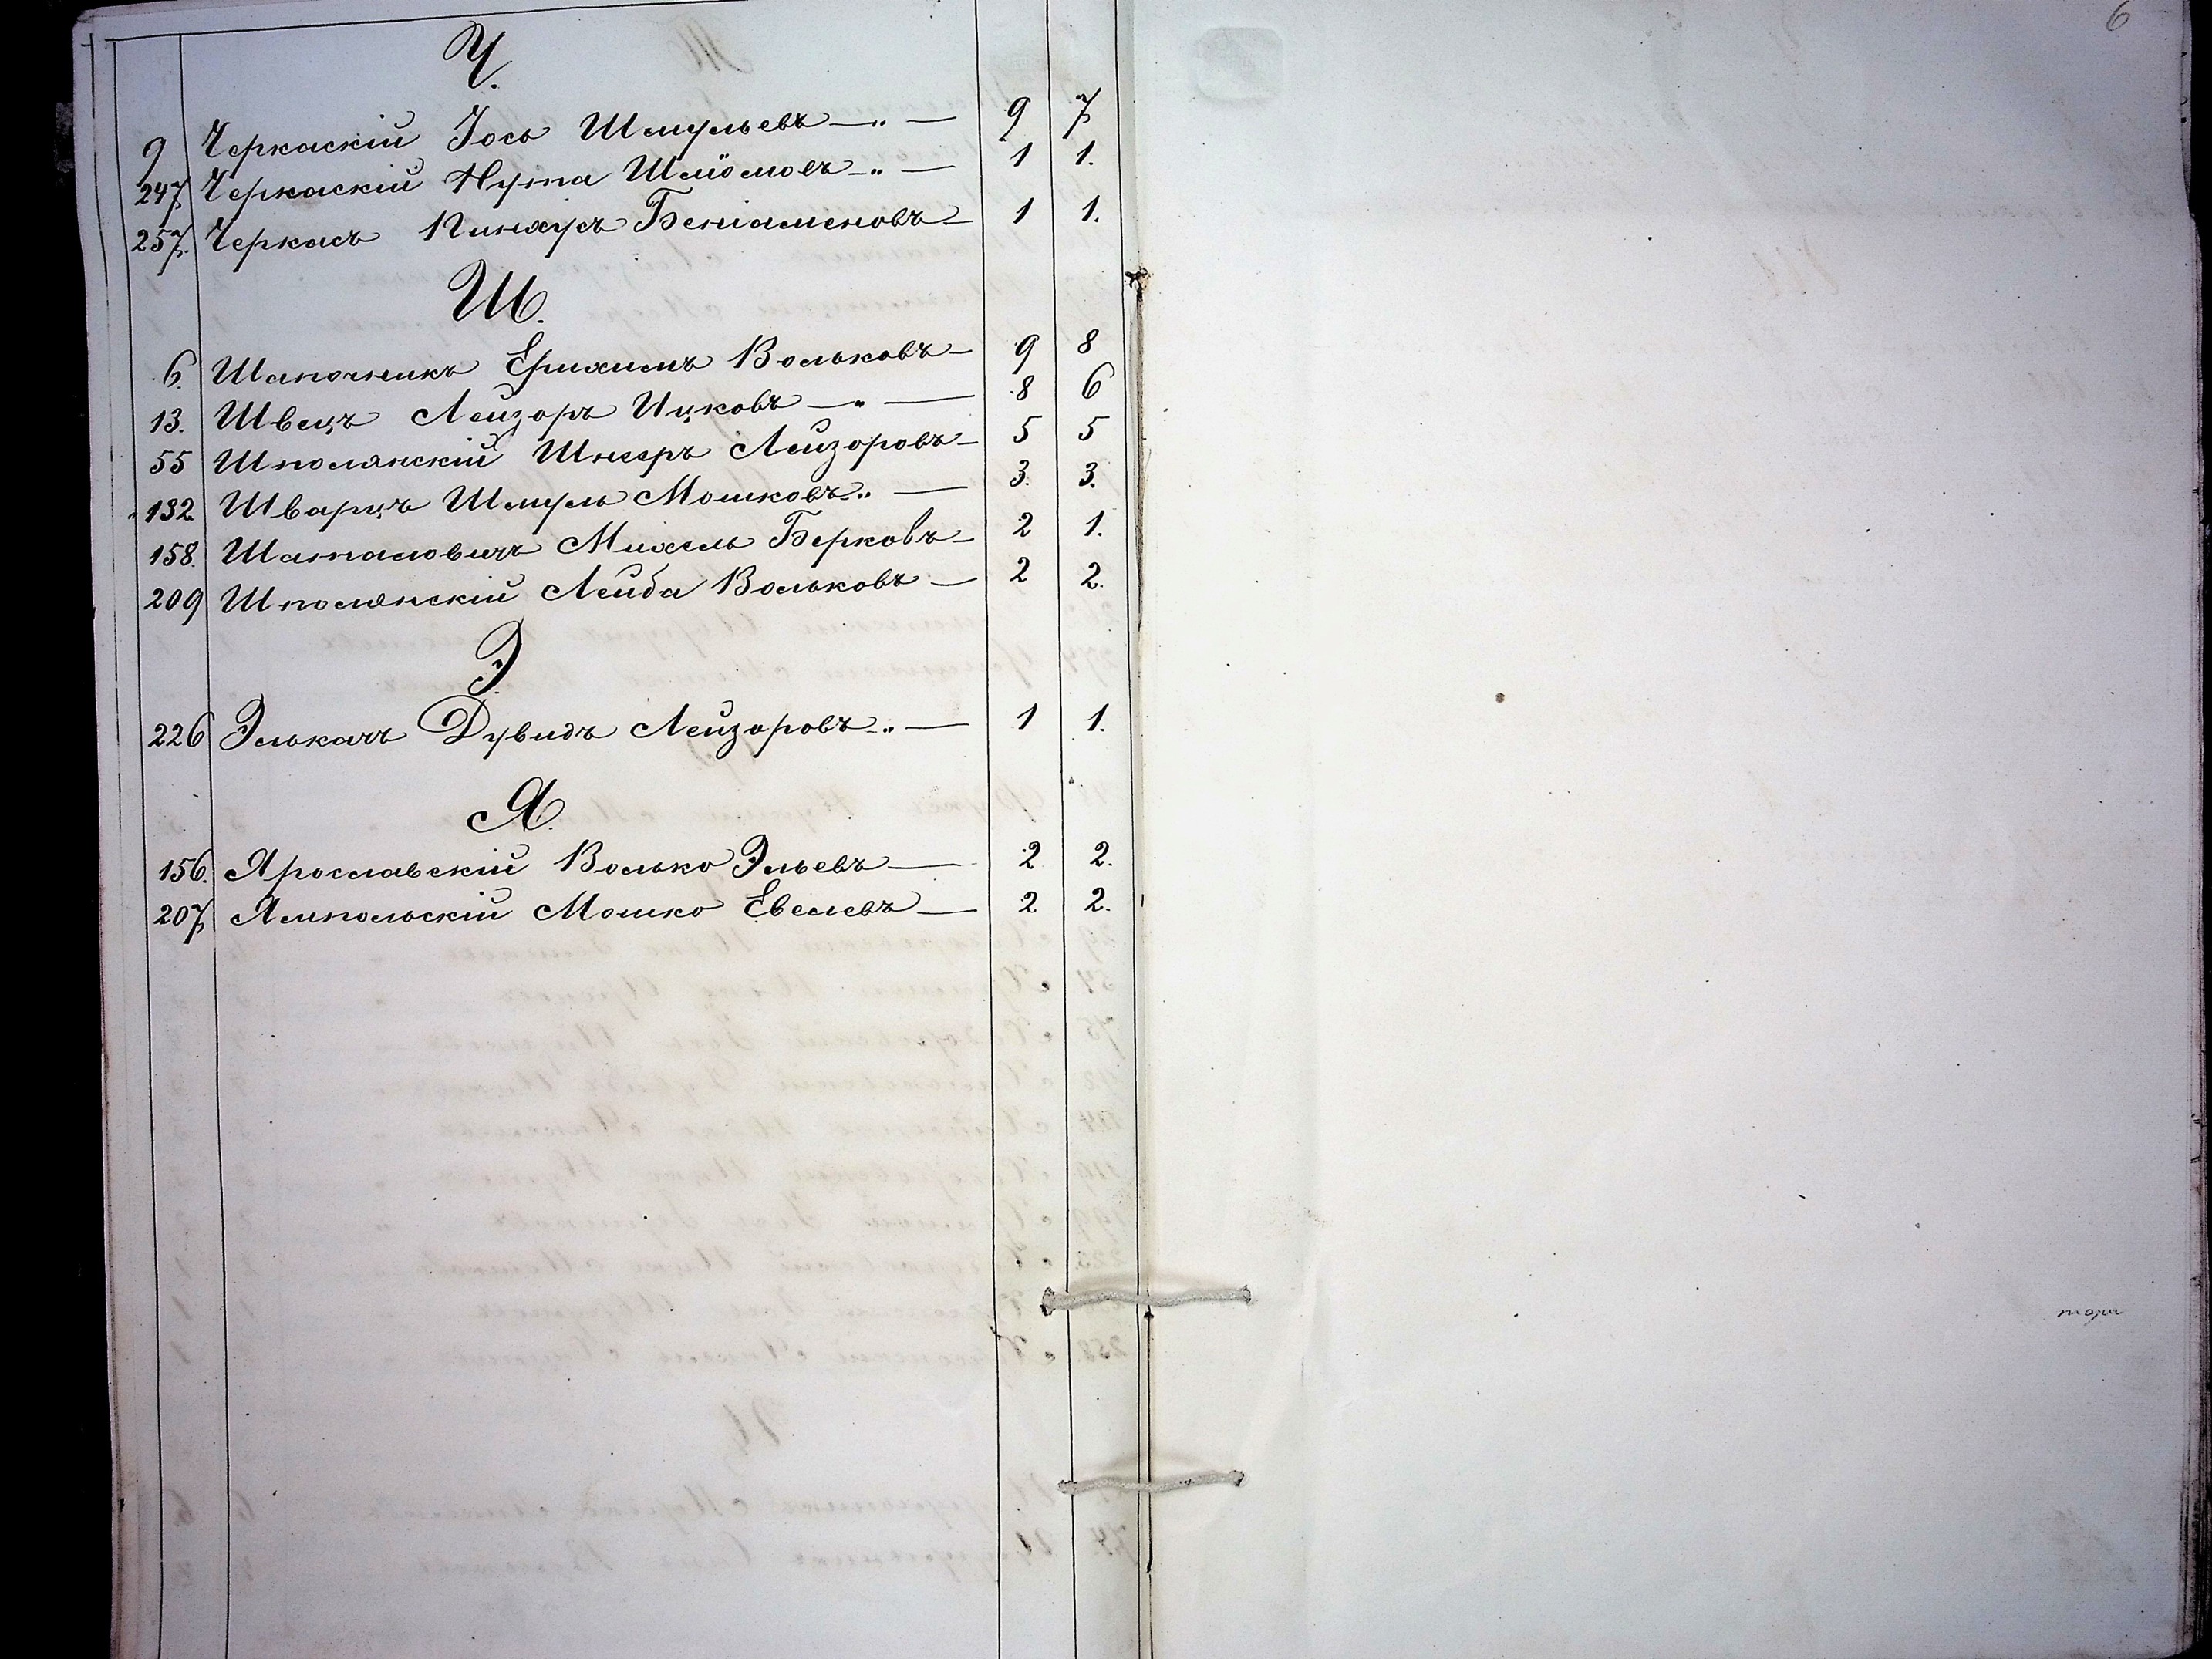 6
Ч.
9 Черкаскій Іось Шмульевъ 9 7
247 Черкаскій Нута Шліомовъ 1 1.
257. Черкасъ Пинхусъ Беніаменовъ 1 1.
Ш.
6. Шапочникъ Ерихимъ Вольковъ 9 8
13. Швецъ Лейзоръ Ицковъ 8 6
55 Шполянскій Шнееръ Лейзоровъ 5 5
132. Шварцъ Шмуль Мошковъ 3. 3.
158. Шаталовичъ Михель Берковъ 2 1.
209 Шполянскій Лейба Вольковъ 2 2.
Э.
226 Элькачъ Дувидъ Лейзоровъ 1 1.
Я.
156. Ярославскій Волько Эльевъ 2 2.
207 Ямпольскій Мошко Евелевъ 2 2.